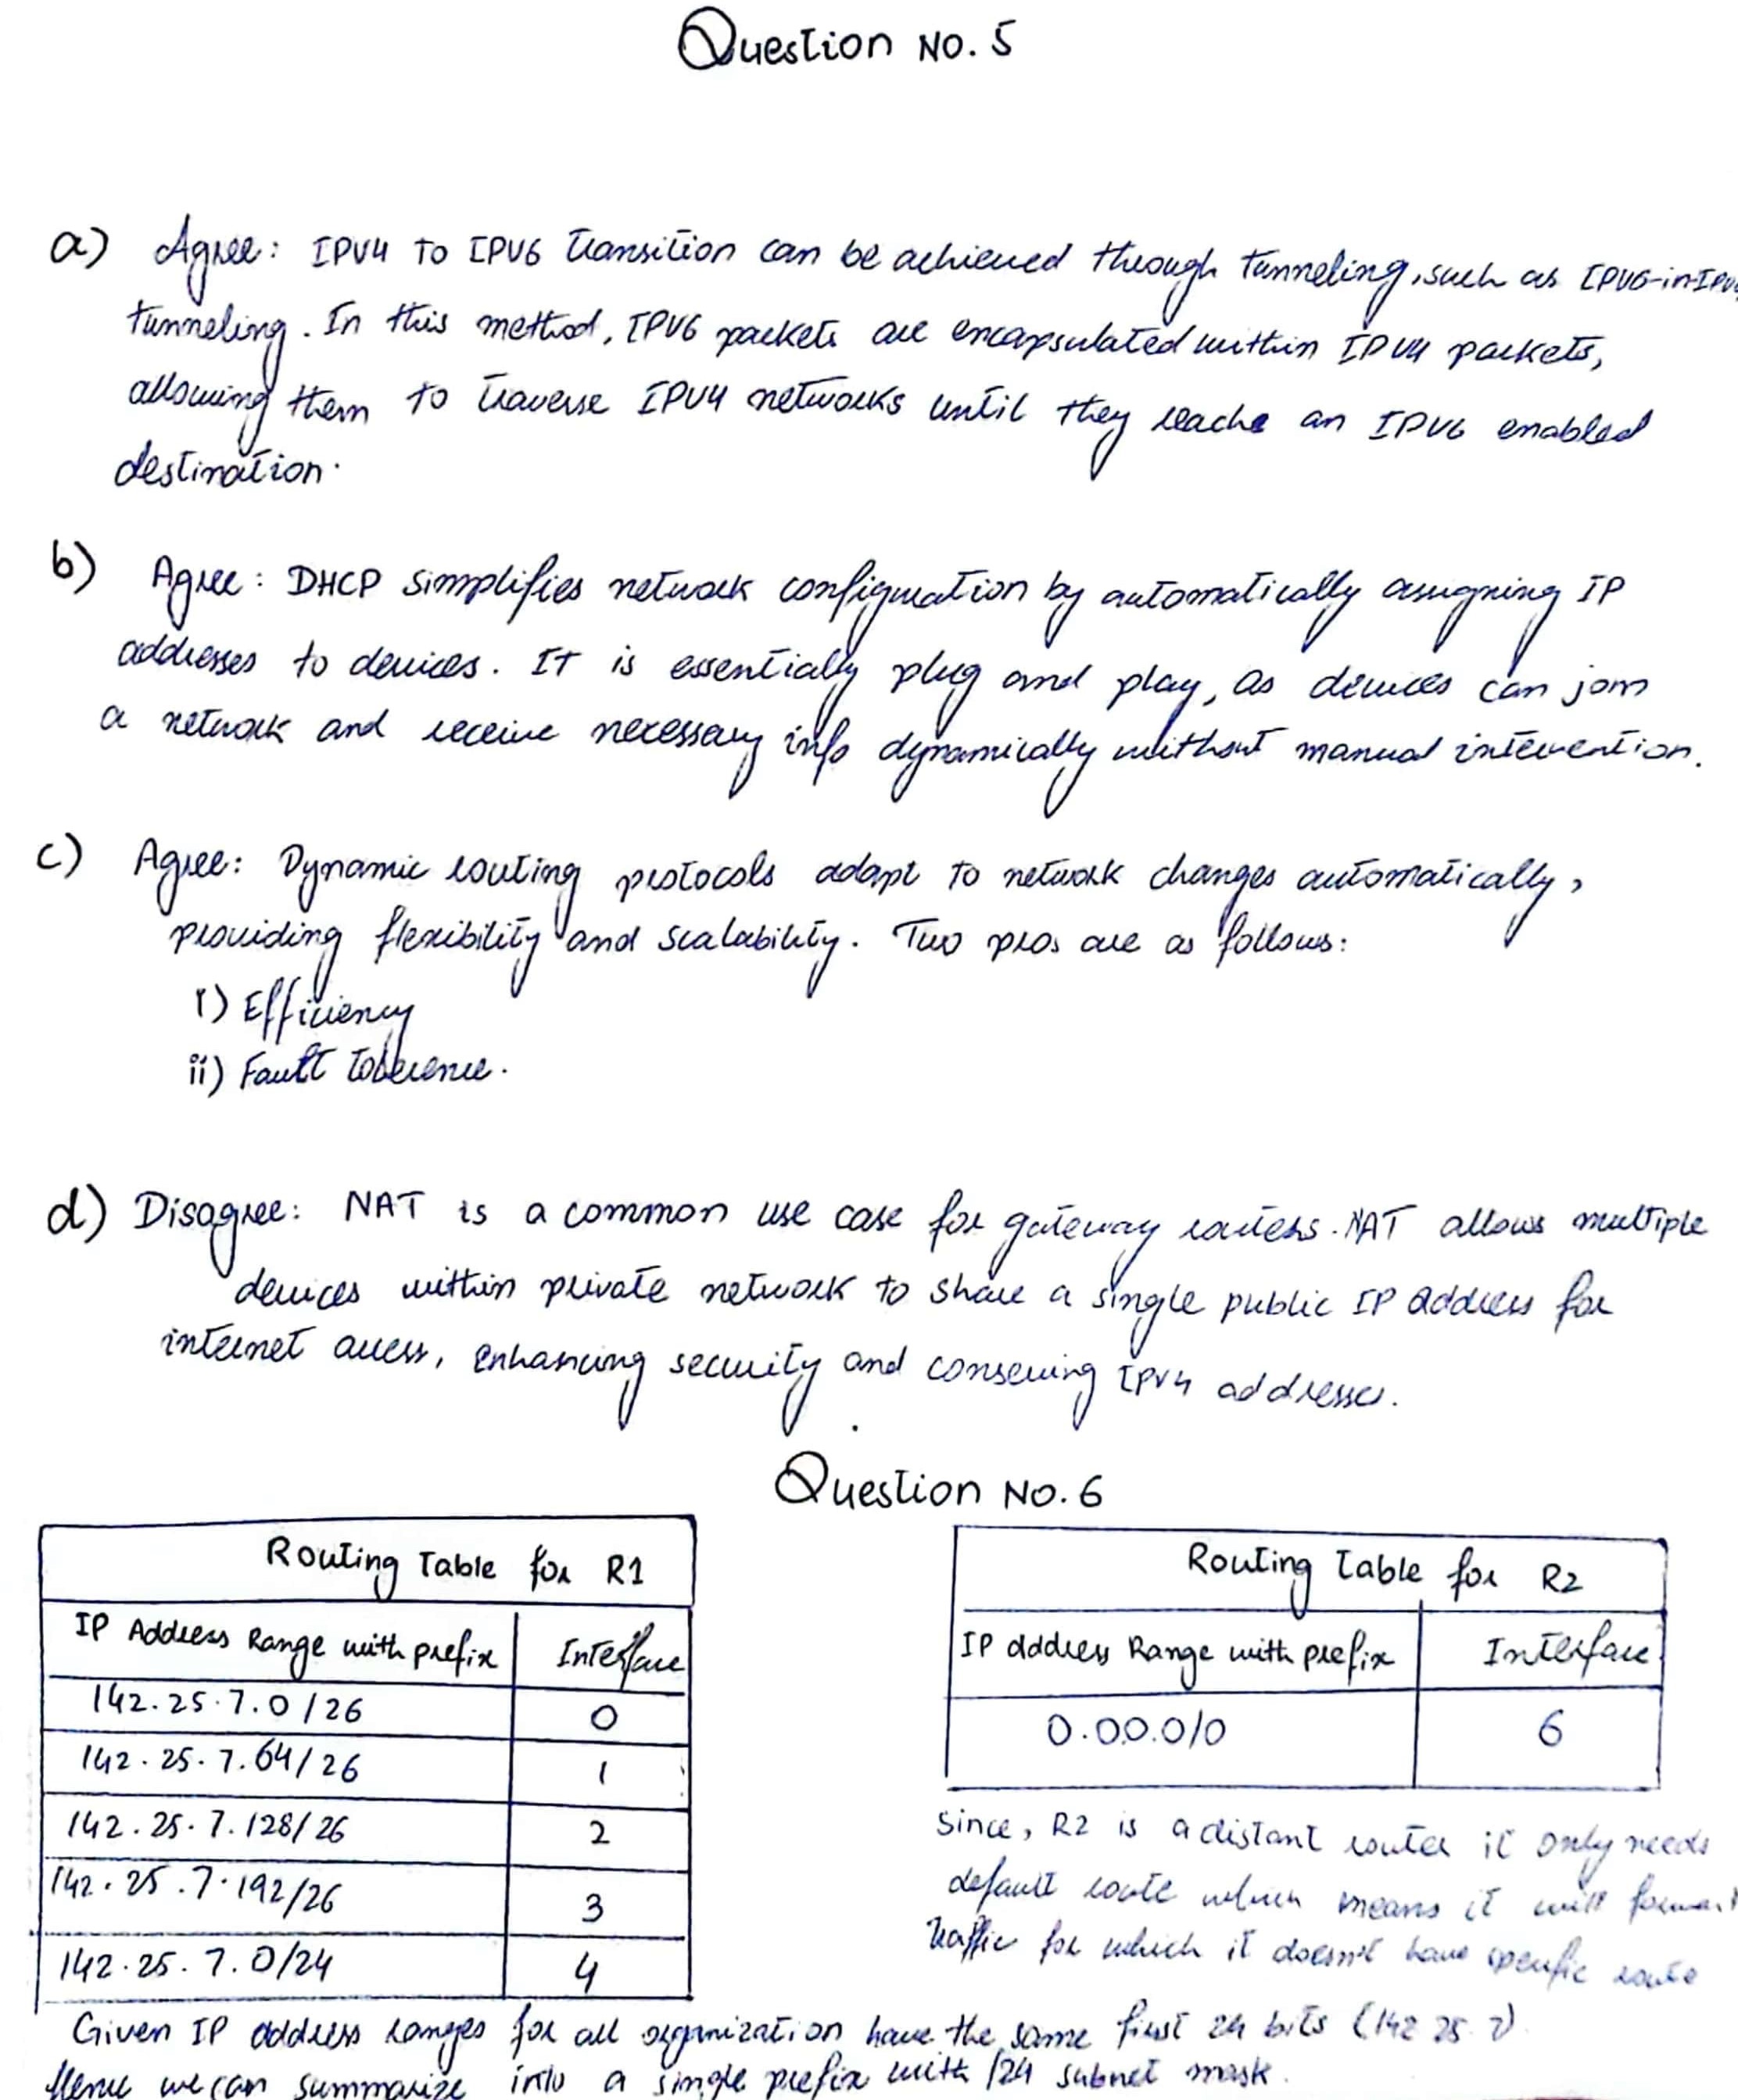 Question No. 5
a) Agree: IPV4 To IPV6 Transition can be achieved through tunneling, such as IPV6-in-IPV4
tunneling. In this method, IPV6 packets are encapsulated within IPV4 packets,
allowing them to traverse IPV4 networks until they reache an IPV6 enabled
destination.
b) Agree: DHCP simplifies network configuration by automatically assigning IP
addresses to devices. It is essentially plug and play, as devices can join
a network and receive necessary info dynamically without manual intervention.
c) Agree: Dynamic routing protocols adapt to network changes automatically,
providing flexibility and scalability. Two pros are as follows:
i) Efficiency
ii) Fault tolerence.
d) Disagree: NAT is a common use case for gateway routers. NAT allows multiple
devices within private network to share a single public IP address for
internet access, enhancing security and conserving IPV4 addresses.
Question No. 6
Routing Table for R1
IP Address Range with prefix Interface
142.25.7.0/26 0
142.25.7.64/26 1
142.25.7.128/26 2
142.25.7.192/26 3
142.25.7.0/24 4
Routing table for R2
IP address Range with prefix Interface
0.0.0.0/0 6
Since, R2 is a distant router it only needs
default route which means it will forward
traffic for which it doesn't have specific route
Given IP address ranges for all organization have the same first 24 bits (142 25 7)
Hence we can summarize into a single prefix with /24 subnet mask.